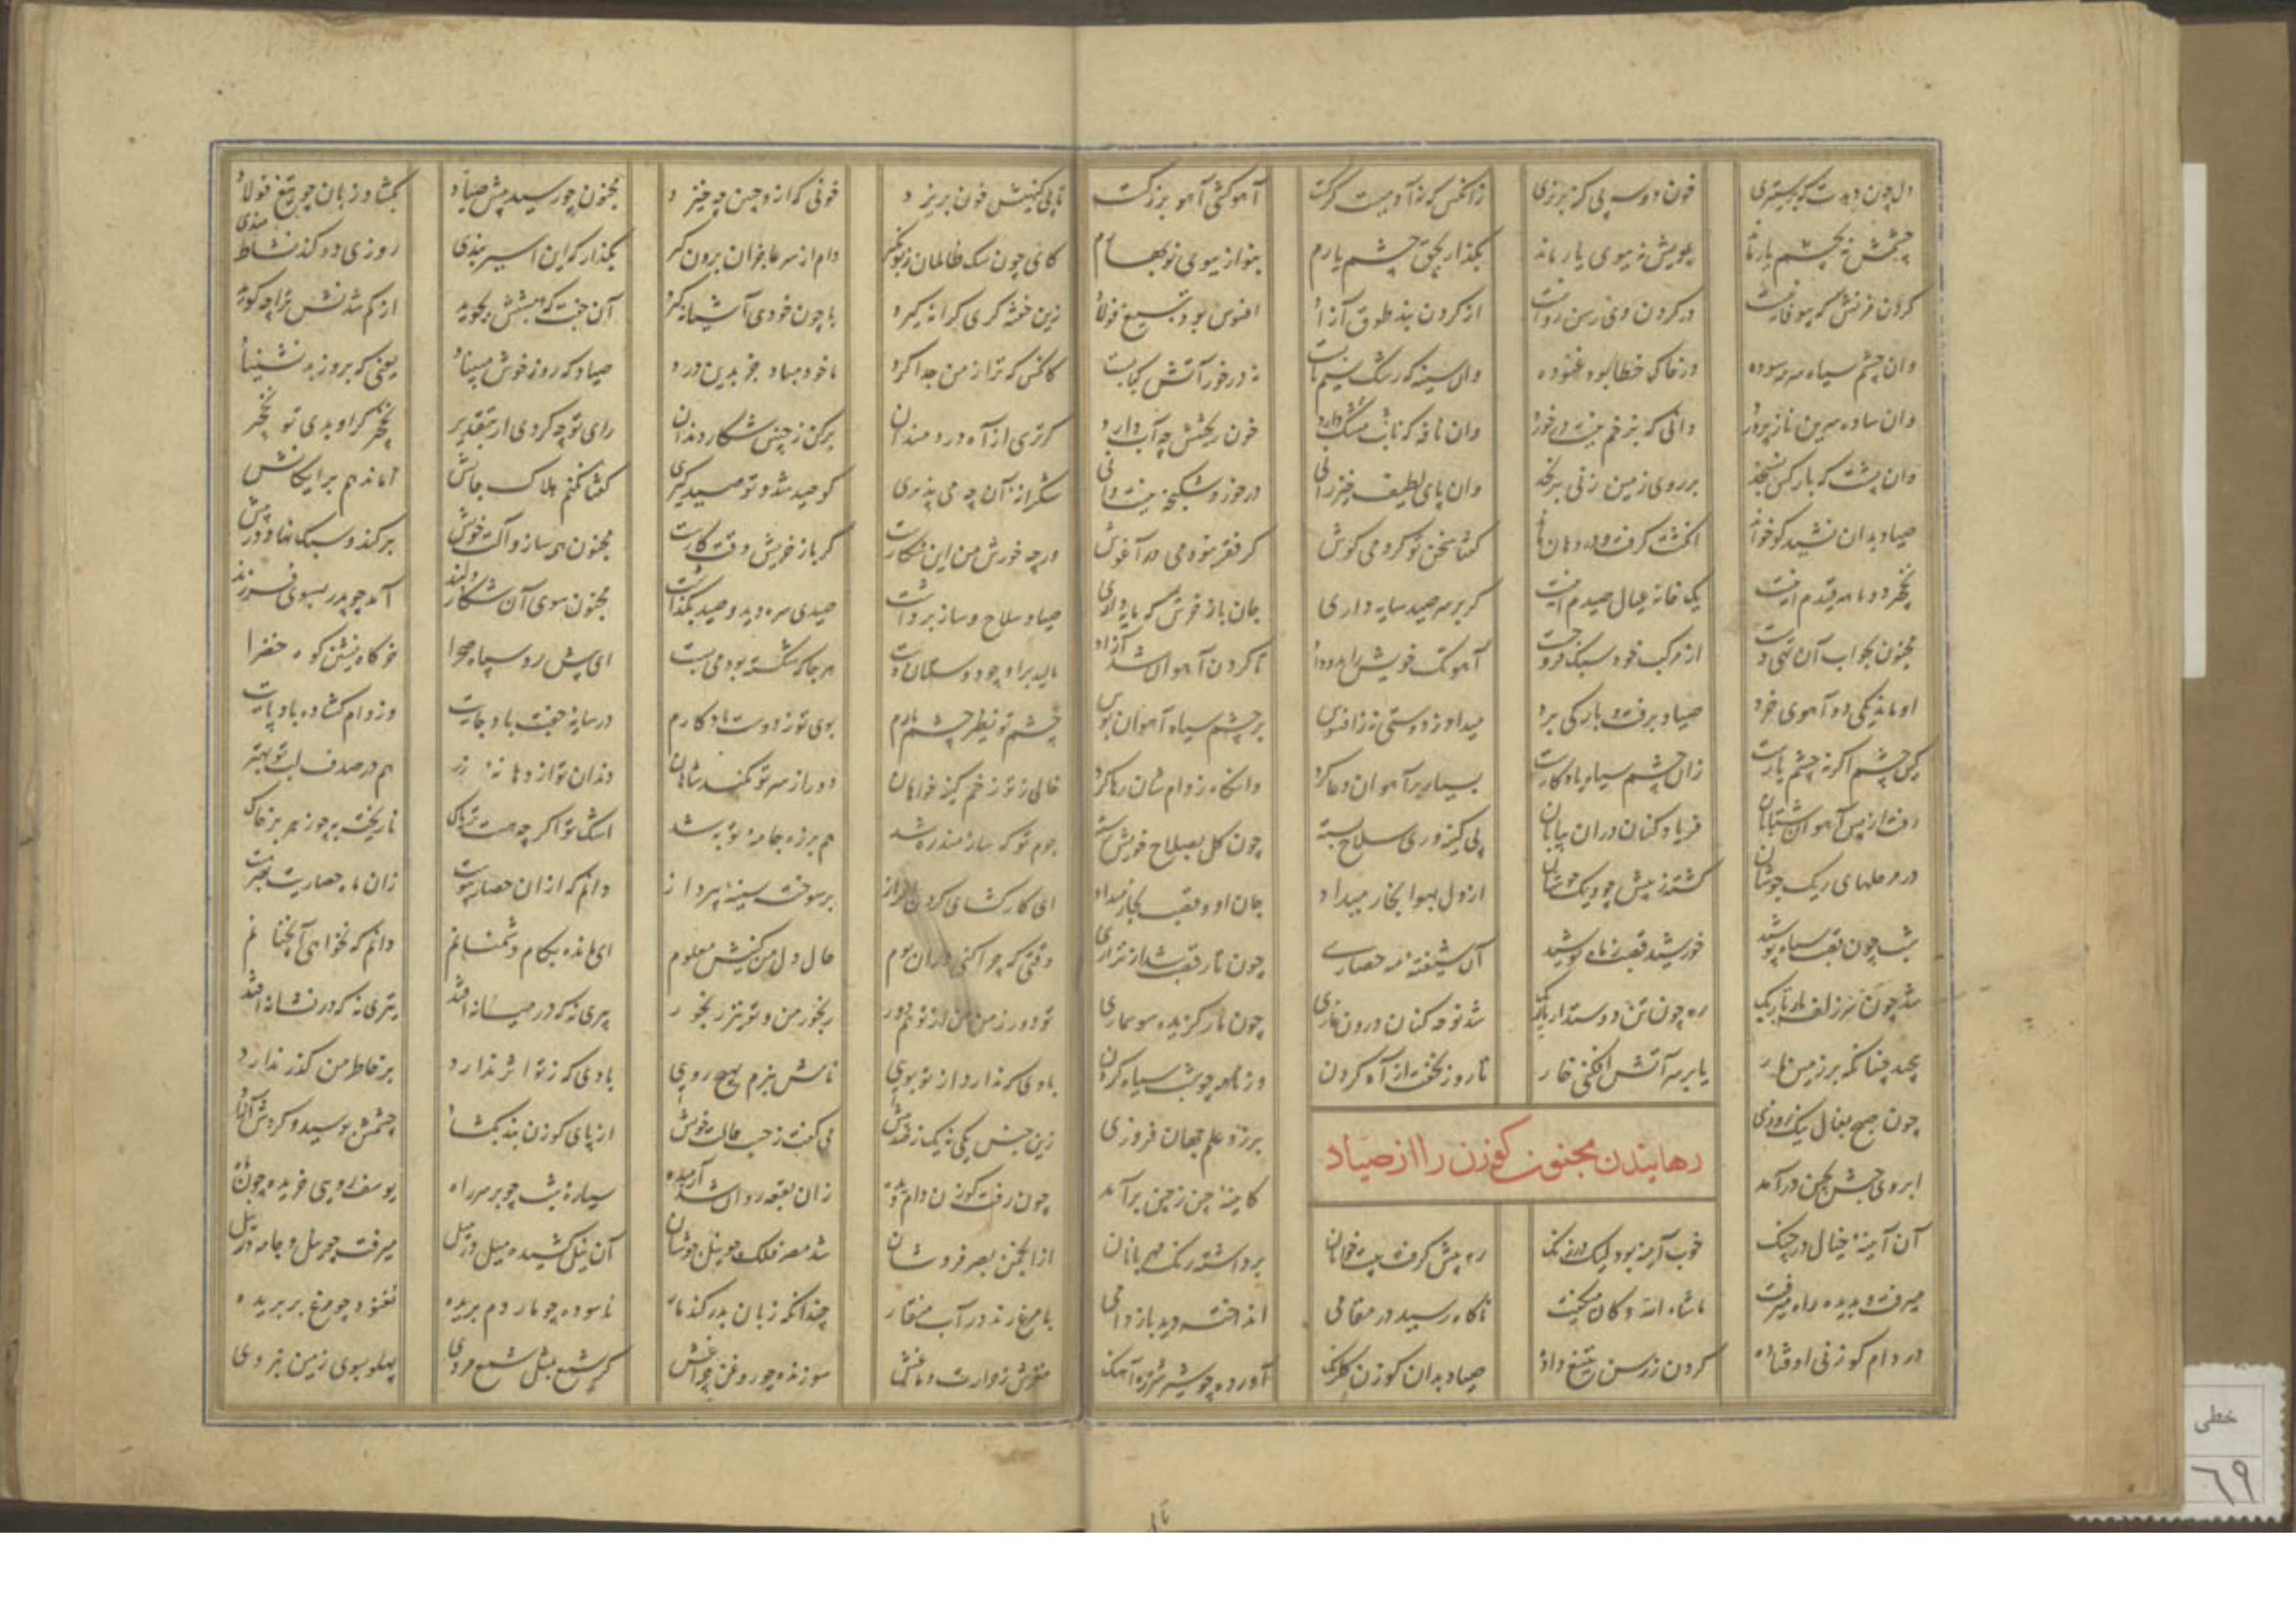 دل چون دهدت که برستیزی خون دو سه بی گنه بریزی زانکس که نه آدمیست گرگست آهو کشی آهو بزرگست
چشمش نه بچشم یار ماند بویش نه ببوی یار ماند بگذار بحق چشم یارم بنواز ببوی نوبهارم
گردن مزنش که بیوفا نیست در گردن وی رسن روا نیست آن گردن بند طوق آزاد افسوس بود بتیغ فولاد
وان چشم سیاه سرمه سوده در خاک خطا بود غنوده وان سینه که رشک سیم نابست نه در خور آتش کبابست
وان ساده سرین نازپرور دانی که بزخم نیست درخور وان نافه که ناف مشک دارد خون ریختنش چه آب دارد
وان پشت که بار کس نسنجد بر روی زمین زنی برنجد وان پای لطیف خیزرانی درخورد شکنجه نیست دانی
صیاد بدان نشید کو خواند انگشت گرفته در دهان ماند گفتا سخن تو کردمی گوش گر فقر نبودمی در آغوش
نخجیر دو ماهه قیدم اینست یک خانه عیال صیدم اینست گر بر سر صید سایه داری جان باز خرش که مایه داری
مجنون بجواب آن تهی دست از مرکب خود سبک فروجست آهوتک خویش را بدو داد تا گردن آهوان شد آزاد
او ماند یکی دو آهوی خرد صیاد برفت و بارگی برد میداد ز دوستی نه زافسوس بر چشم سیاه آهوان بوس
کین چشم اگر نه چشم یارست زان چشم سیاه یادگارست بسیار بر آهوان دعا کرد وانگاه ز دام شان رها کرد
رفت از پس آهوان شتابان فریاد کنان دران بیابان بی کینه وری سلاح بسته چون گل بصلاح خویش رسته
در مرحلهای ریگ جوشان گشته ز تبش چو دیگ جوشان از دل بهوا بخار میداد جان او قصب بخار میداد
شب چون قصب سیاه پوشید خورشید قصب ز ماه پوشید آن شیفته مه حصاری چون تار قصب شد از نزاری
شد چون سر زلف یار تاریک ره چون تن دوستدار باریک شد نوحه کنان درون غاری چون مار گزیده سوسماری
پیچد چنانکه بر زمین مار یا بر سر آتش افکنی خار تا روز نخفت از آه کردن وز نامه چو شب سیاه کردن
چون صبح بفال نیک روزی برزد علم جهان فروزی
ابروی حبش بچین درآمد کایینه چین ز چین برآمد
رهانیدن مجنون گوزن را از صیاد
آن آینه خیال در چنگ خوب آینه بود لیک در زنگ ره پیش گرفت بیت خوانان برداشته رنگ مهربانان
میرفت و بدیده راه میرفت ماشاء الله ناگاه رسید در مقامی انداخته دید باز دامی
در دام گوزنی اوفتاده گردن ز رسن بتیغ داده صیاد بدان گوزن گلرنگ آورده چو شیر شرزه آهنگ
تا بی گنهیش خون بریزد خونی که ازو چنین چه خیزد مجنون چو رسید پیش صیاد بگشاد زبان چو تیغ فولاد
کای چون سگ ظالمان زبونگیر دام از سر عاجزان برون گیر بگذار که این اسیر بندی روزی دو کند نشاط مندی
زین کرانه گیرد با چون خودی آشیانه گیرد آن جفت که نیستش نجوید از گم شدنش ترا چه گوید
کانکس که ترا ز من جدا کرد ماخود مباد جز بدین درد صیاد که روز خوش مبیناد یعنی که بروز بد نشیناد
گر ترسی از آه دردمندان برکن ز چنین شکار دندان رای تو چه کردی ار بتقدیر نخجیر گر او بدی تو نخجیر
شکرانه آن چه می پذیری کو صید شد و تو صید گیری گفتا نکنم هلاک جانش اما ندهم برایگانش
وجه خورش من این شکارست گر باز خریش وقت کارست مجنون همه ساز و آلت خویش برکند و سبک نهاد در پیش
صیاد سلاح و ساز برداشت صیدی سره دید و صید بگذاشت مجنون سوی آن شکار دلبند آمد چو پدر بسوی فرزند
مالید برو چو دوستان دست هر جا که شکسته بود می بست ای پیش رو سپاه صحرا خرگاه نشین کوه خضرا
چشم تو نظیر چشم یارم بوی تو ز دوست یادگارم در سایه جفت باد جایت وز دام گشاده باد پایت
خالی ز تو زخم کینه خواهان دور از سر تو کمند شاهان دندان تو از دهانه زر هم در صدف لب تو بهتر
چرم تو که ساز مند زه شد هم بر زه جامه تو به شد اشک تو اگر چه هست تریاک ناریخته به چو زهر بر خاک
ای کار گشای گردن افراز برسوخته سینه پرداز دانم که ازان حصار زان ماه حصاریت خبر هست
وقتی که چرا کنی دران بوم حال دل من کنیش معلوم ای مانده بکام دشمنانم دانم که نخواهی آنچنانم
تو دور ز من من از تو هم دور رنجور من و تو نیز رنجور پیری نه که در میانه افتد تیری نه که در نشانه افتد
بادی که ندارد از تو بویی نامش نبرم بهیچ رویی بادی که ز تو اثر ندارد بر خاطر من گذر ندارد
زین جنس یکی نه یک ز صد بیش می گفت ز حسب حالت خویش از پای گوزن بند بگشاد چشمش بوسید و کردش آزاد
چون رفت گوزن دام دیده زان بقعه روان شد آرمیده سیاره شب چو بر سر راه یوسف رویی خریده چون ماه
از انجمن بصر فروشان شد مصر فلک چو نیل جوشان آن نیل کشیده میل در میل میرفت چو نیل و جامه در نیل
تا مرغ زند در آب منقار چندانکه زبان بدر کند مار ناسوده چو مار دم بریده نغنوده چو مرغ پر بریده
مغزش ز حرارت دماغش سوزنده چو روغن چراغش گر شمع مثل شمع مردی پهلو بسوی زمین نبردی
خطی
٦٩